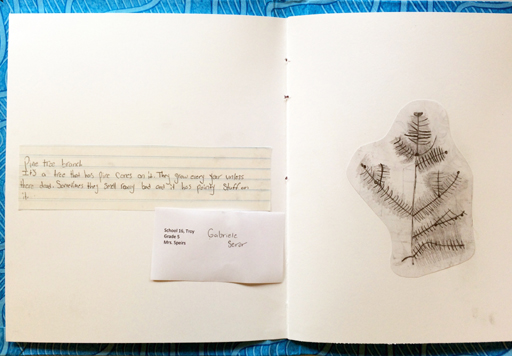 Pine tree branch
It's a tree that has pine cones on it. They grow every year unless
there dead. Sometimes they smell really bad and it has pointy stuff on
it.
School 16, Troy
Grade 5
Mrs. Speirs
Gabriele